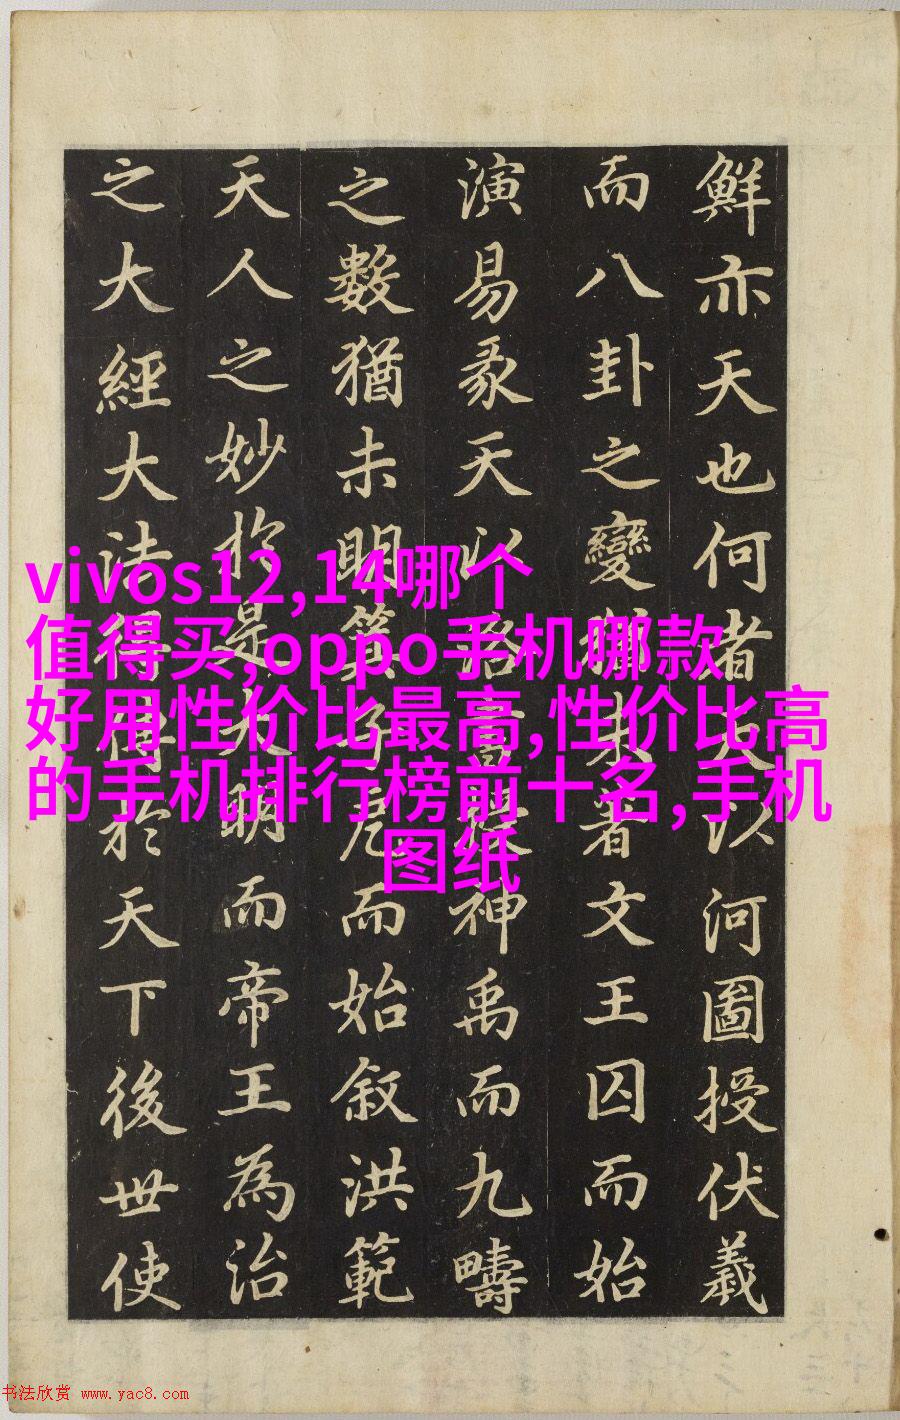 鮮亦天也何者天以河圖授伏羲
而八卦之變猶未著文王囚而始
演易彖天以洛書神禹而九疇
之數猶未明箕子危而始叙洪範
天人之妙於是大明而帝王為治
之大經大法得傳於天下後世使
vivos12,14哪个
值得买,oppo手机哪款
好用性价比最高,性价比高
的手机排行榜前十名,手机
图纸
书法欣赏 www.yac8.com